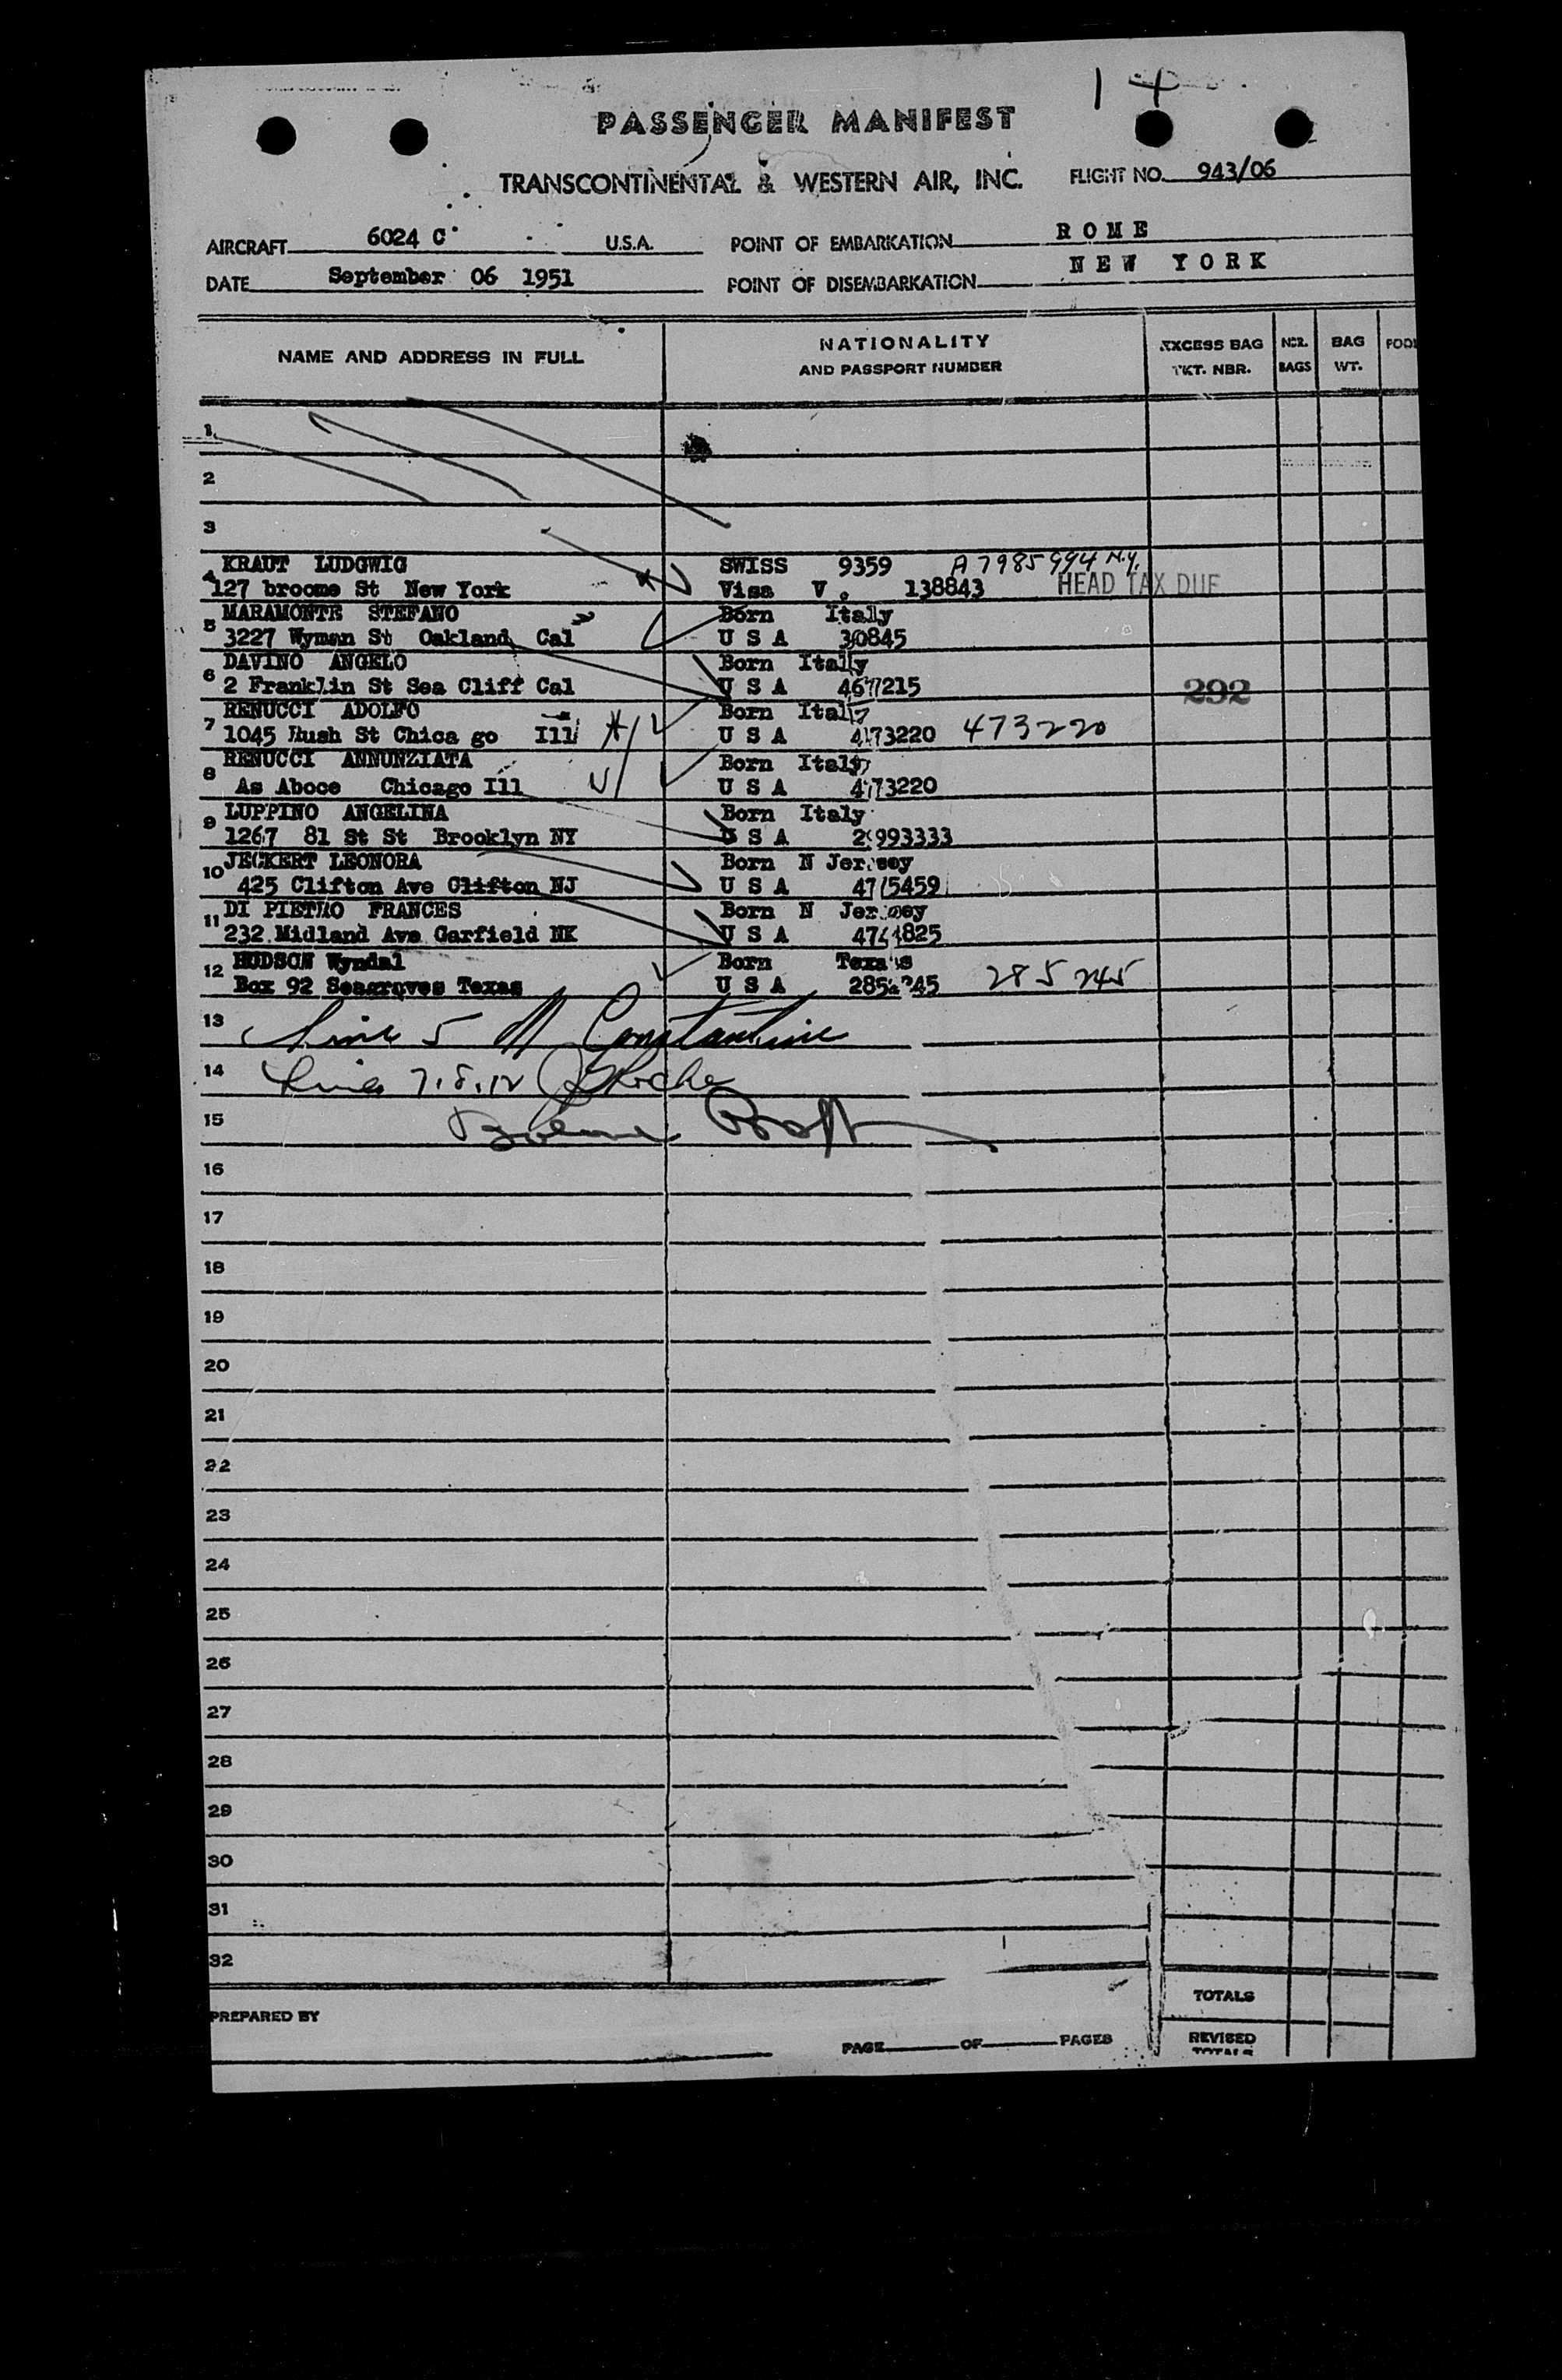 14
PASSENGER MANIFEST
TRANSCONTINENTAL & WESTERN AIR, INC. FLIGHT NO. 943/06
AIRCRAFT 6024 C U.S.A. POINT OF EMBARKATION ROME
DATE September 06 1951 POINT OF DISEMBARKATION NEW YORK
NAME AND ADDRESS IN FULL NATIONALITY AND PASSPORT NUMBER EXCESS BAG TKT. NBR. NBR. BAGS BAG WT.
1
2
3
KRAUT LUDGWIG SWISS 9359 A7985994 N.Y.
4 127 broome St New York Visa V. 138843 HEAD TAX DUE
MARAMONTE STEFANO Born Italy
5 3227 Wyman St Oakland Cal U S A 30845
DAVINO ANGELO Born Italy
6 2 Franklin St Sea Cliff Cal U S A 467215 292
RENUCCI ADOLFO Born Italy
7 1045 Rush St Chica go Ill U S A 473220 473220
RENUCCI ANNUNZIATA Born Italy
8 As Aboce Chicago Ill U S A 473220
LUPPINO ANGELINA Born Italy
9 1267 81 St St Brooklyn NY U S A
JECKERT LEONORA Born N Jersey
10 425 Clifton Ave Clifton NJ U S A
DI PIETRO FRANCES Born N Jersey
11 232 Midland Ave Garfield NK U S A
HUDSON Wyndal Born Texas
12 Box 92 Seagraves Texas U S A 285245 285245
13 Line 5 M Constantine
14 Lines 7.8.12 Roche
15
16
17
18
19
20
21
22
23
24
25
26
27
28
29
30
31
32
TOTALS
PREPARED BY
PAGE OF PAGES REVISED TOTALS